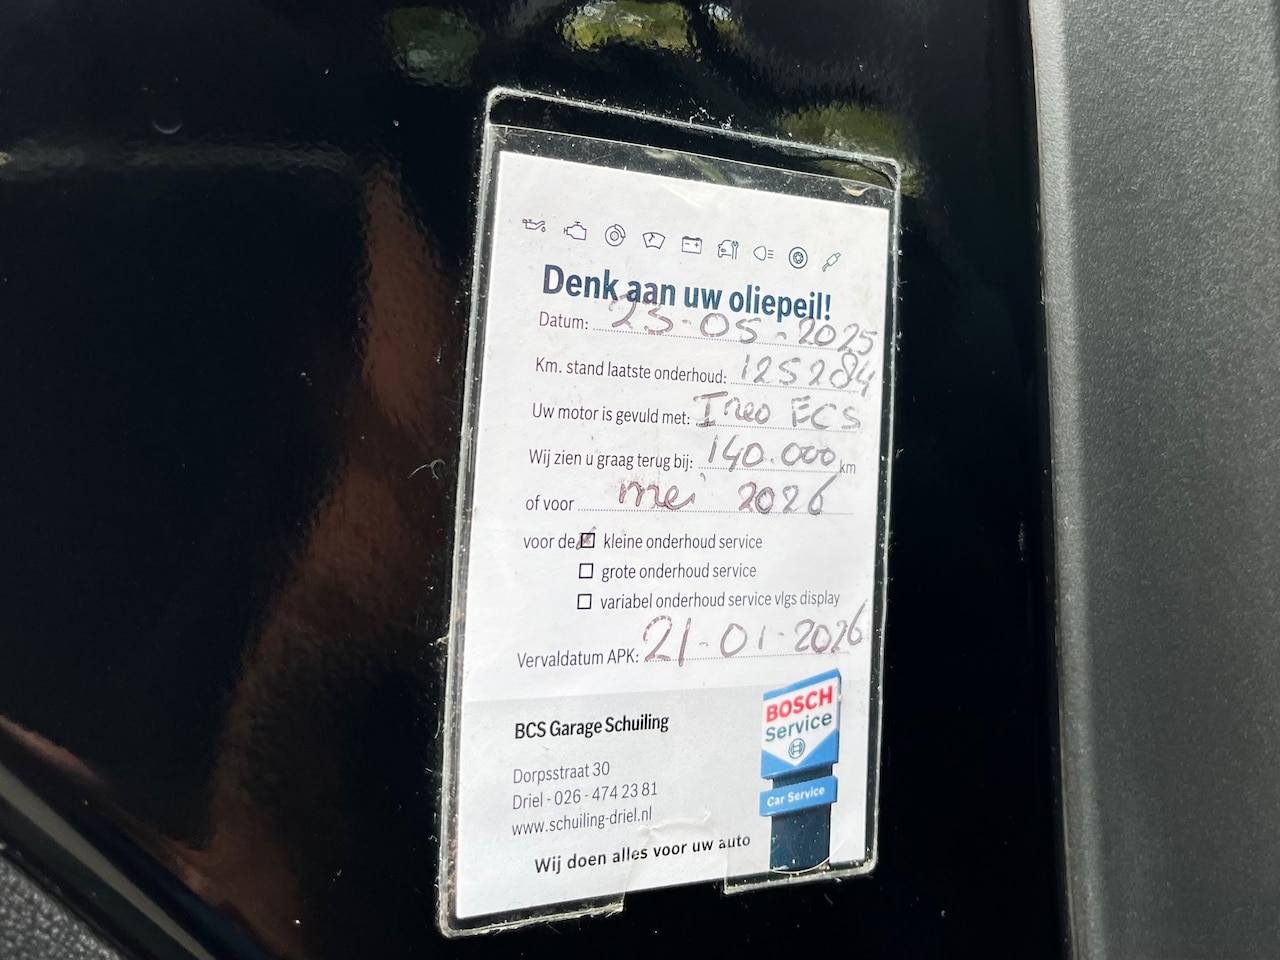 Denk aan uw oliepeil!
Datum: 23-05-2025
Km. stand laatste onderhoud: 125284
Uw motor is gevuld met: Ineo ECS
Wij zien u graag terug bij: 140.000 km
of voor mei 2026
voor de kleine onderhoud service
grote onderhoud service
variabel onderhoud service vlgs display
Vervaldatum APK: 21-01-2026
BCS Garage Schuiling
Dorpsstraat 30
Driel - 026 - 474 23 81
www.schuiling-driel.nl
Wij doen alles voor uw auto
BOSCH
Service
Car Service